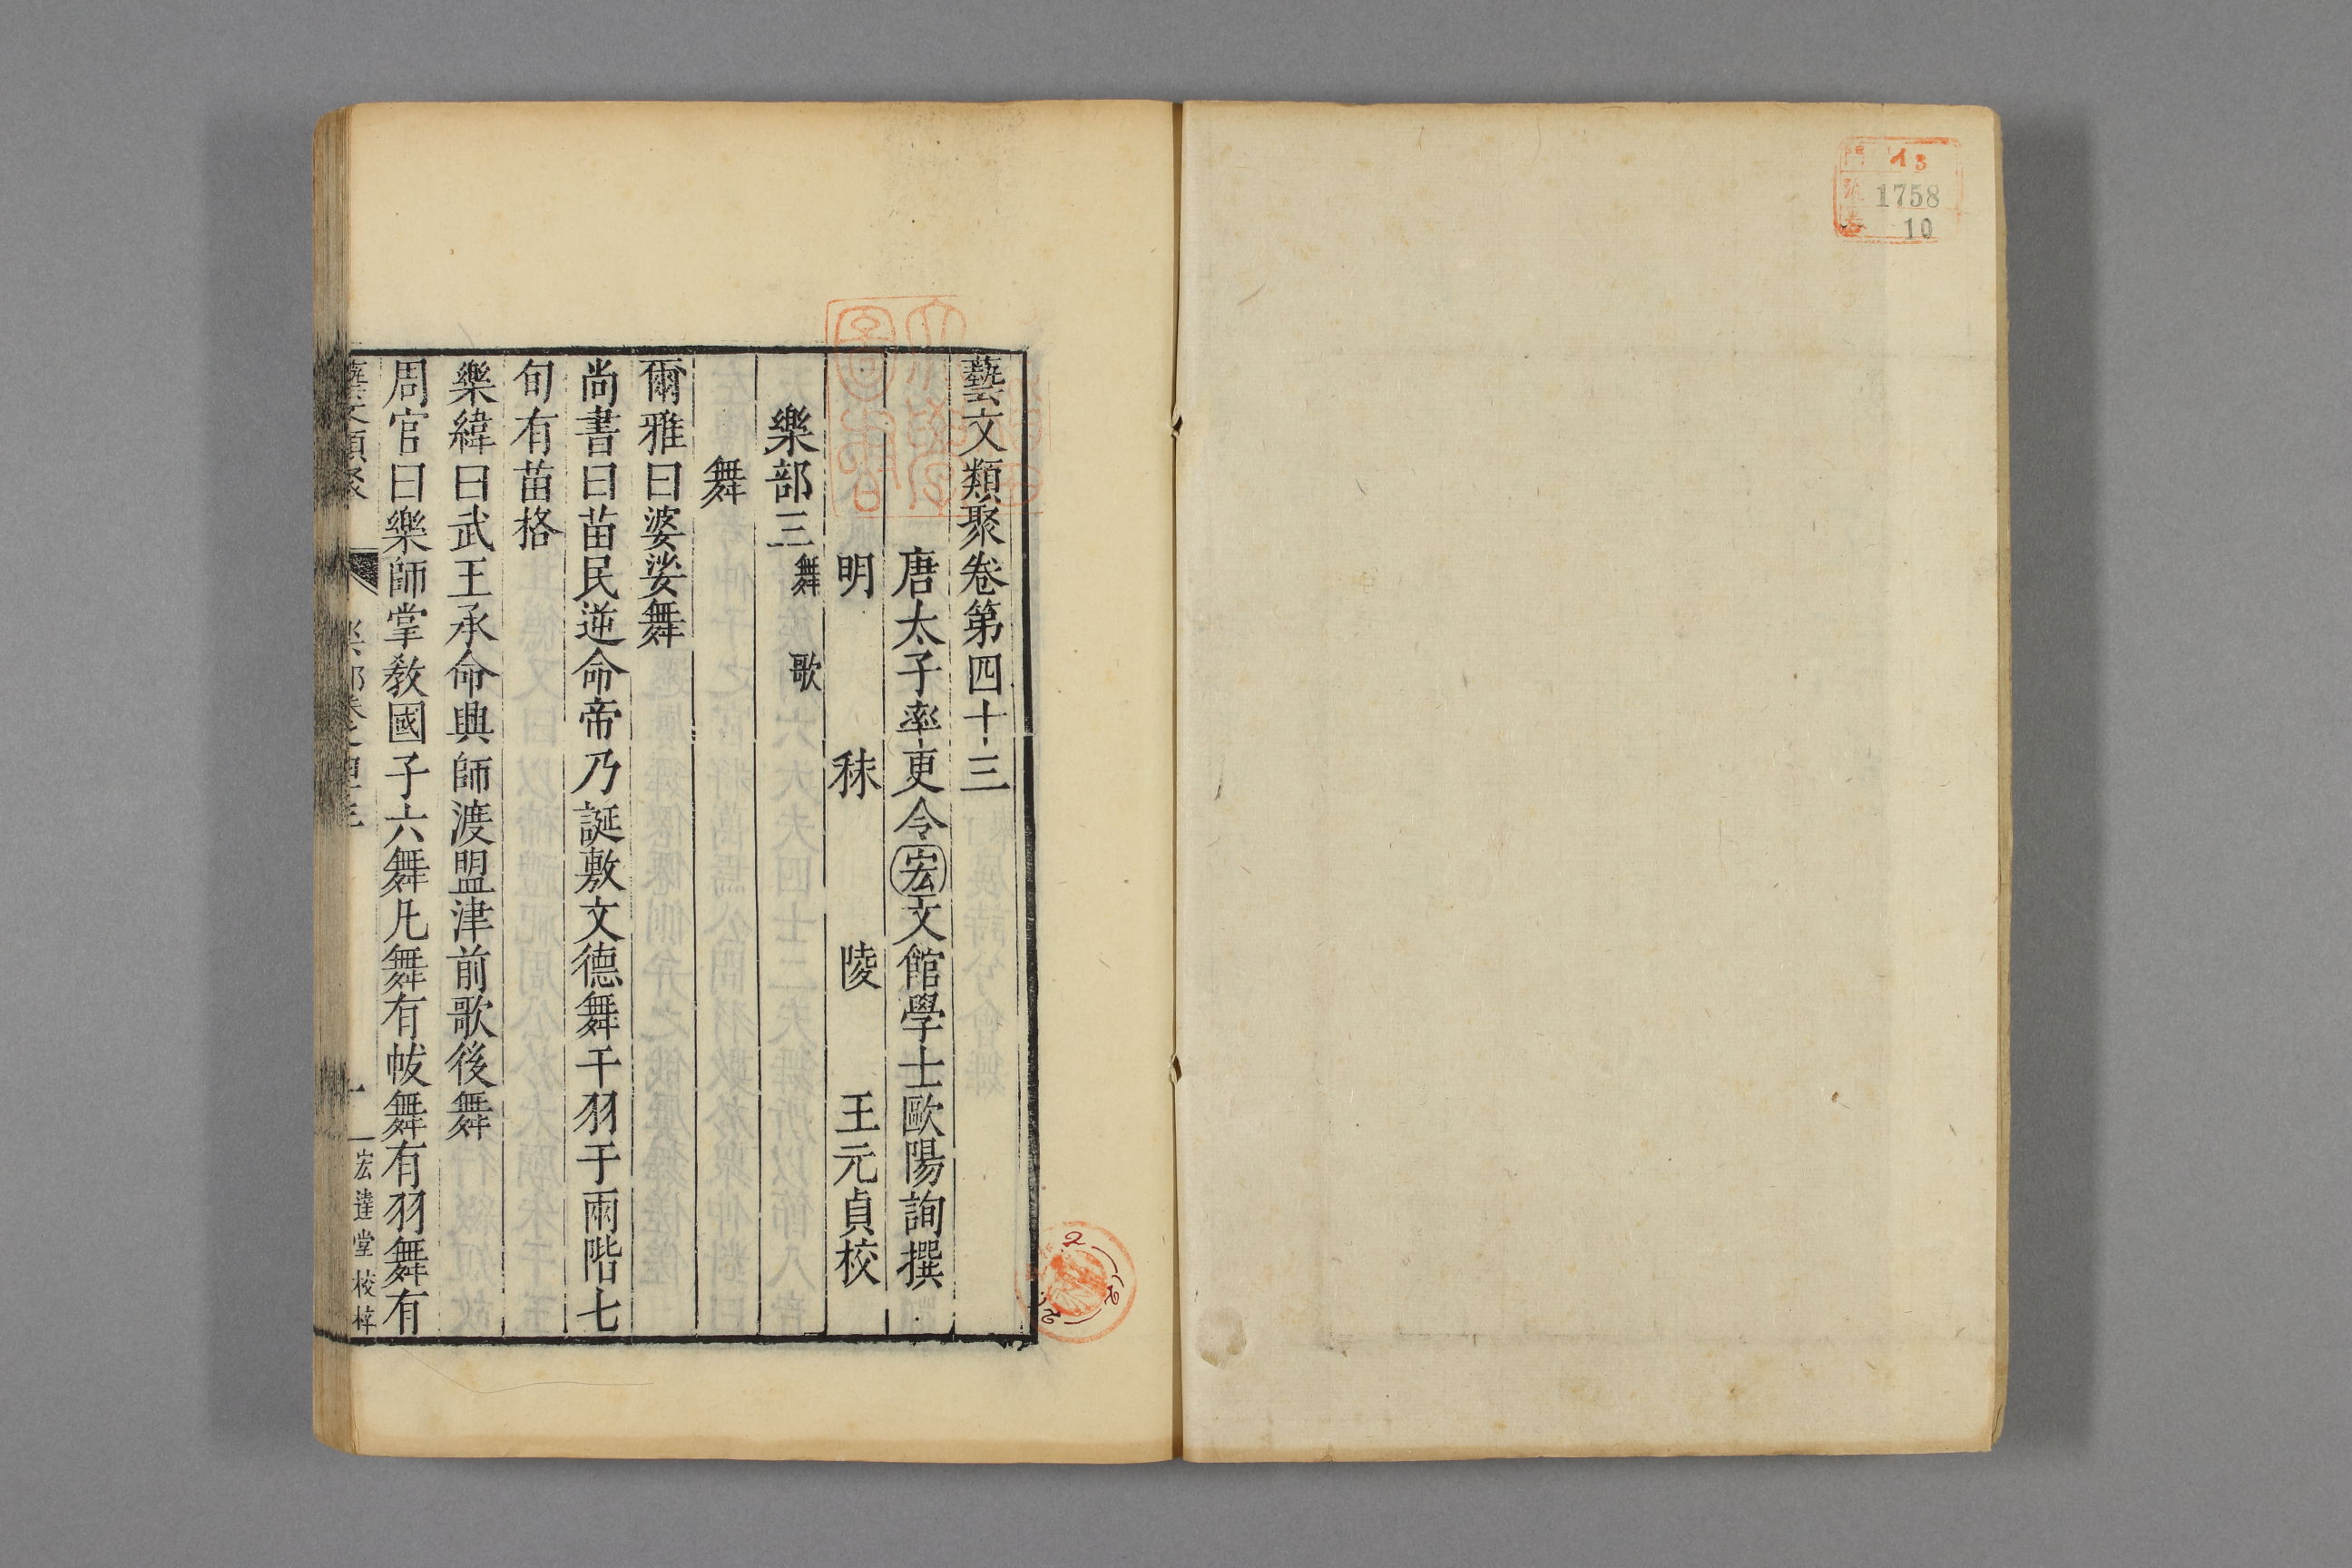 藝文類聚卷第四十三
唐太子率更令宏文館學士歐陽詢撰
明 秣陵 王元貞校
樂部三 舞 歌
舞
爾雅曰婆娑舞
尚書曰苗民逆命帝乃誕敷文德舞干羽于兩階七
旬有苗格
樂緯曰武王承命興師渡盟津前歌後舞
周官曰樂師掌教國子六舞凡舞有帗舞有羽舞有
藝文類聚 樂部卷之四十三 一 宏達堂校梓
13
1758
10